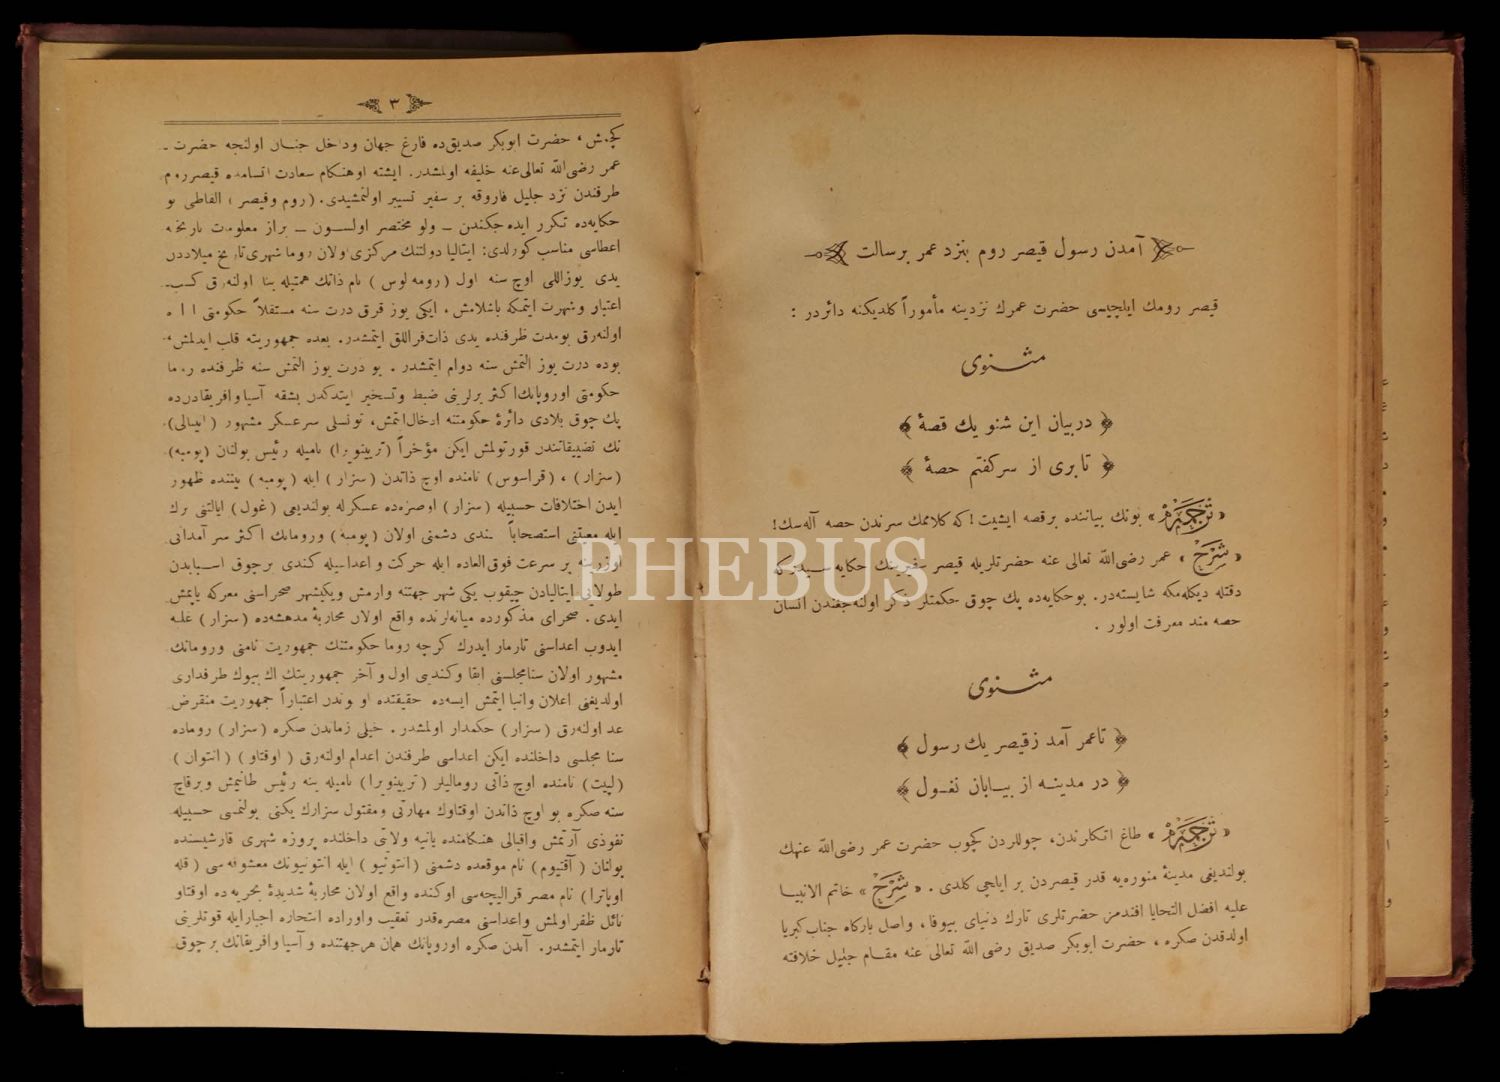 آمدن رسول قیصر روم بنزد عمر برسالت
قیصر رومك ایلچیسی حضرت عمرك نزدینه مأموراً كلدیكنه دائردر :
مثنوی
﴿ دربیان این شنو یك قصهٔ ﴾
﴿ تا بری از سركفتم حصهٔ ﴾
« ترجمه » بونك بیاننده برقصه ایشیت ! كه كلامك سرندن حصه آله‌سك !
« شرح » عمر رضی‌الله تعالی عنه حضرتلریله قیصر سفیرینك حكایه
دقتله دیكله‌مكه شایسته‌در. بوحكایه‌ده پك چوق حكمتلر ذكر اولنه‌جغندن انسان
حصه مند معرفت اولور .
مثنوی
﴿ تا عمر آمد زقیصر یك رسول ﴾
﴿ در مدینه از بیابان نغول ﴾
« ترجمه » طاغ اتكلرندن، چوللردن كچوب حضرت عمر رضی‌الله عنهك
بولندیغی مدینهٔ منوره‌یه قدر قیصردن بر ایلچی كلدی . « شرح » خاتم الانبیا
علیه افضل التحایا افندمز حضرتلری تارك دنیای بیوفا ، واصل باركاه جناب كبریا
اولدقدن صكره ، حضرت ابوبكر صدیق رضی الله تعالی عنه مقام جلیل خلافته
٣
كچمش ، حضرت ابوبكر صدیق‌ده فارغ جهان وداخل جنان اولنجه حضرت
عمر رضی‌الله تعالی‌عنه خلیفه اولمشدر. ایشته اوهنكام سعادت قیصر روم
طرفندن نزد جلیل فاروقه بر سفیر تسییر اولنمشیدی. ( روم وقیصر ) الفاظی بو
حكایه‌ده تكرر ایده‌جكندن ــ ولو مختصر اولسون ــ براز معلومات تاریخیه
اعطاسی مناسب كورلدی: ایتالیا دولتنك مركزی اولان روما شهری تاریخ میلاددن
یدی یوزاللی اوچ سنه اول ( رومه‌لوس ) نام ذاتك همتیله بنا اولنه‌رق كسب
اعتبار وشهرت ایتمكه باشلامش ، ایكی یوز قرق درت سنه مستقلاً حكومتی
اولنه‌رق بومدت ظرفنده یدی ذات قراللق ایتمشدر. بعده جمهوریته قلب ایدلمش
بوده درت یوز التمش سنه دوام ایتمشدر . بو درت یوز التمش سنه ظرفنده روما
حكومتی اوروپانك اكثر یرلرینی ضبط وتسخیر ایتدكدن بشقه آسیا وافریقادن‌ده
پك چوق بلادی دائرهٔ حكومتنه ادخال ایتمش، تونسلی سرعسكر مشهور ( انیبالی )
نك تضییقاتندن قورتولمش ایكن مؤخراً ( تریینویرا ) نامیله رئیس بولنان ( پومپه )
( سزار ) ، ( قراسوس ) نامنده اوچ ذاتدن ( سزار ) ایله ( پومپه ) بیننده ظهور
ایدن اختلافات حسبیله ( سزار ) اوصره‌ده عسكرله بولندیغی ( غول ) ایالتنی ترك
ایله معیتنی استصحاباً دشمنی اولان ( پومپه ) ورومانك اكثر سر آمدانی
اوزرینه بر سرعت فوق‌العاده ایله حركت و اعداسیله كندی برچوق اسبابدن
طولایی ایتالیادن چیقوب یكی شهر جهتنه وارمش ویكیشهر صحراسنی معركه یاپمش
ایدی . صحرای مذكورده میانه‌لرنده واقع اولان محاربهٔ مدهشه‌ده ( سزار ) غلبه
ایدوب اعداسنی تارمار ایدرك كرچه روما حكومتنك جمهوریت نامنی ورومانك
مشهور اولان سنامجلسنی ابقا وكندیی اول و آخر جمهوریتك اك بیوك طرفداری
اولدیغنی اعلان وانبا ایتمش ایسه‌ده حقیقتده او وندن اعتباراً جمهوریت منقرض
عد اولنه‌رق ( سزار ) حكمدار اولمشدر . خیلی زماندن صكره ( سزار ) روماده
سنا مجلسی داخلنده ایكن اعداسی طرفندن اعدام اولنه‌رق ( اوقتاو ) ( انتوان )
( لپیت ) نامنده اوچ ذاتی رومالیلر ( تریینویرا ) نامیله ینه رئیس طانیمش وبرقاچ
سنه صكره بو اوچ ذاتدن اوقتاوك مهارتی ومقتول سزارك یكنی بولنمسی حسبیله
نفوذی آرتمش واقبالی هنكامنده یانیه ولایتی داخلنده پروزه شهری قارشیسنده
بولنان ( آقتیوم ) نام موقعده دشمنی ( انتونیو ) ایله انتونیونك معشوقه‌سی ( قله
اوپاترا ) نام مصر قرالیچه‌سی اوكنده واقع اولان محاربهٔ شدیدهٔ بحریه‌ده اوقتاو
نائل ظفر اولمش واعداسنی مصره‌قدر تعقیب واوراده انتحاره اجبار ایله قوتلرینی
تارمار ایتمشدر. آندن صكره اوروپانك همان هر جهتنده و آسیا وافریقانك برچوق
PHEBUS